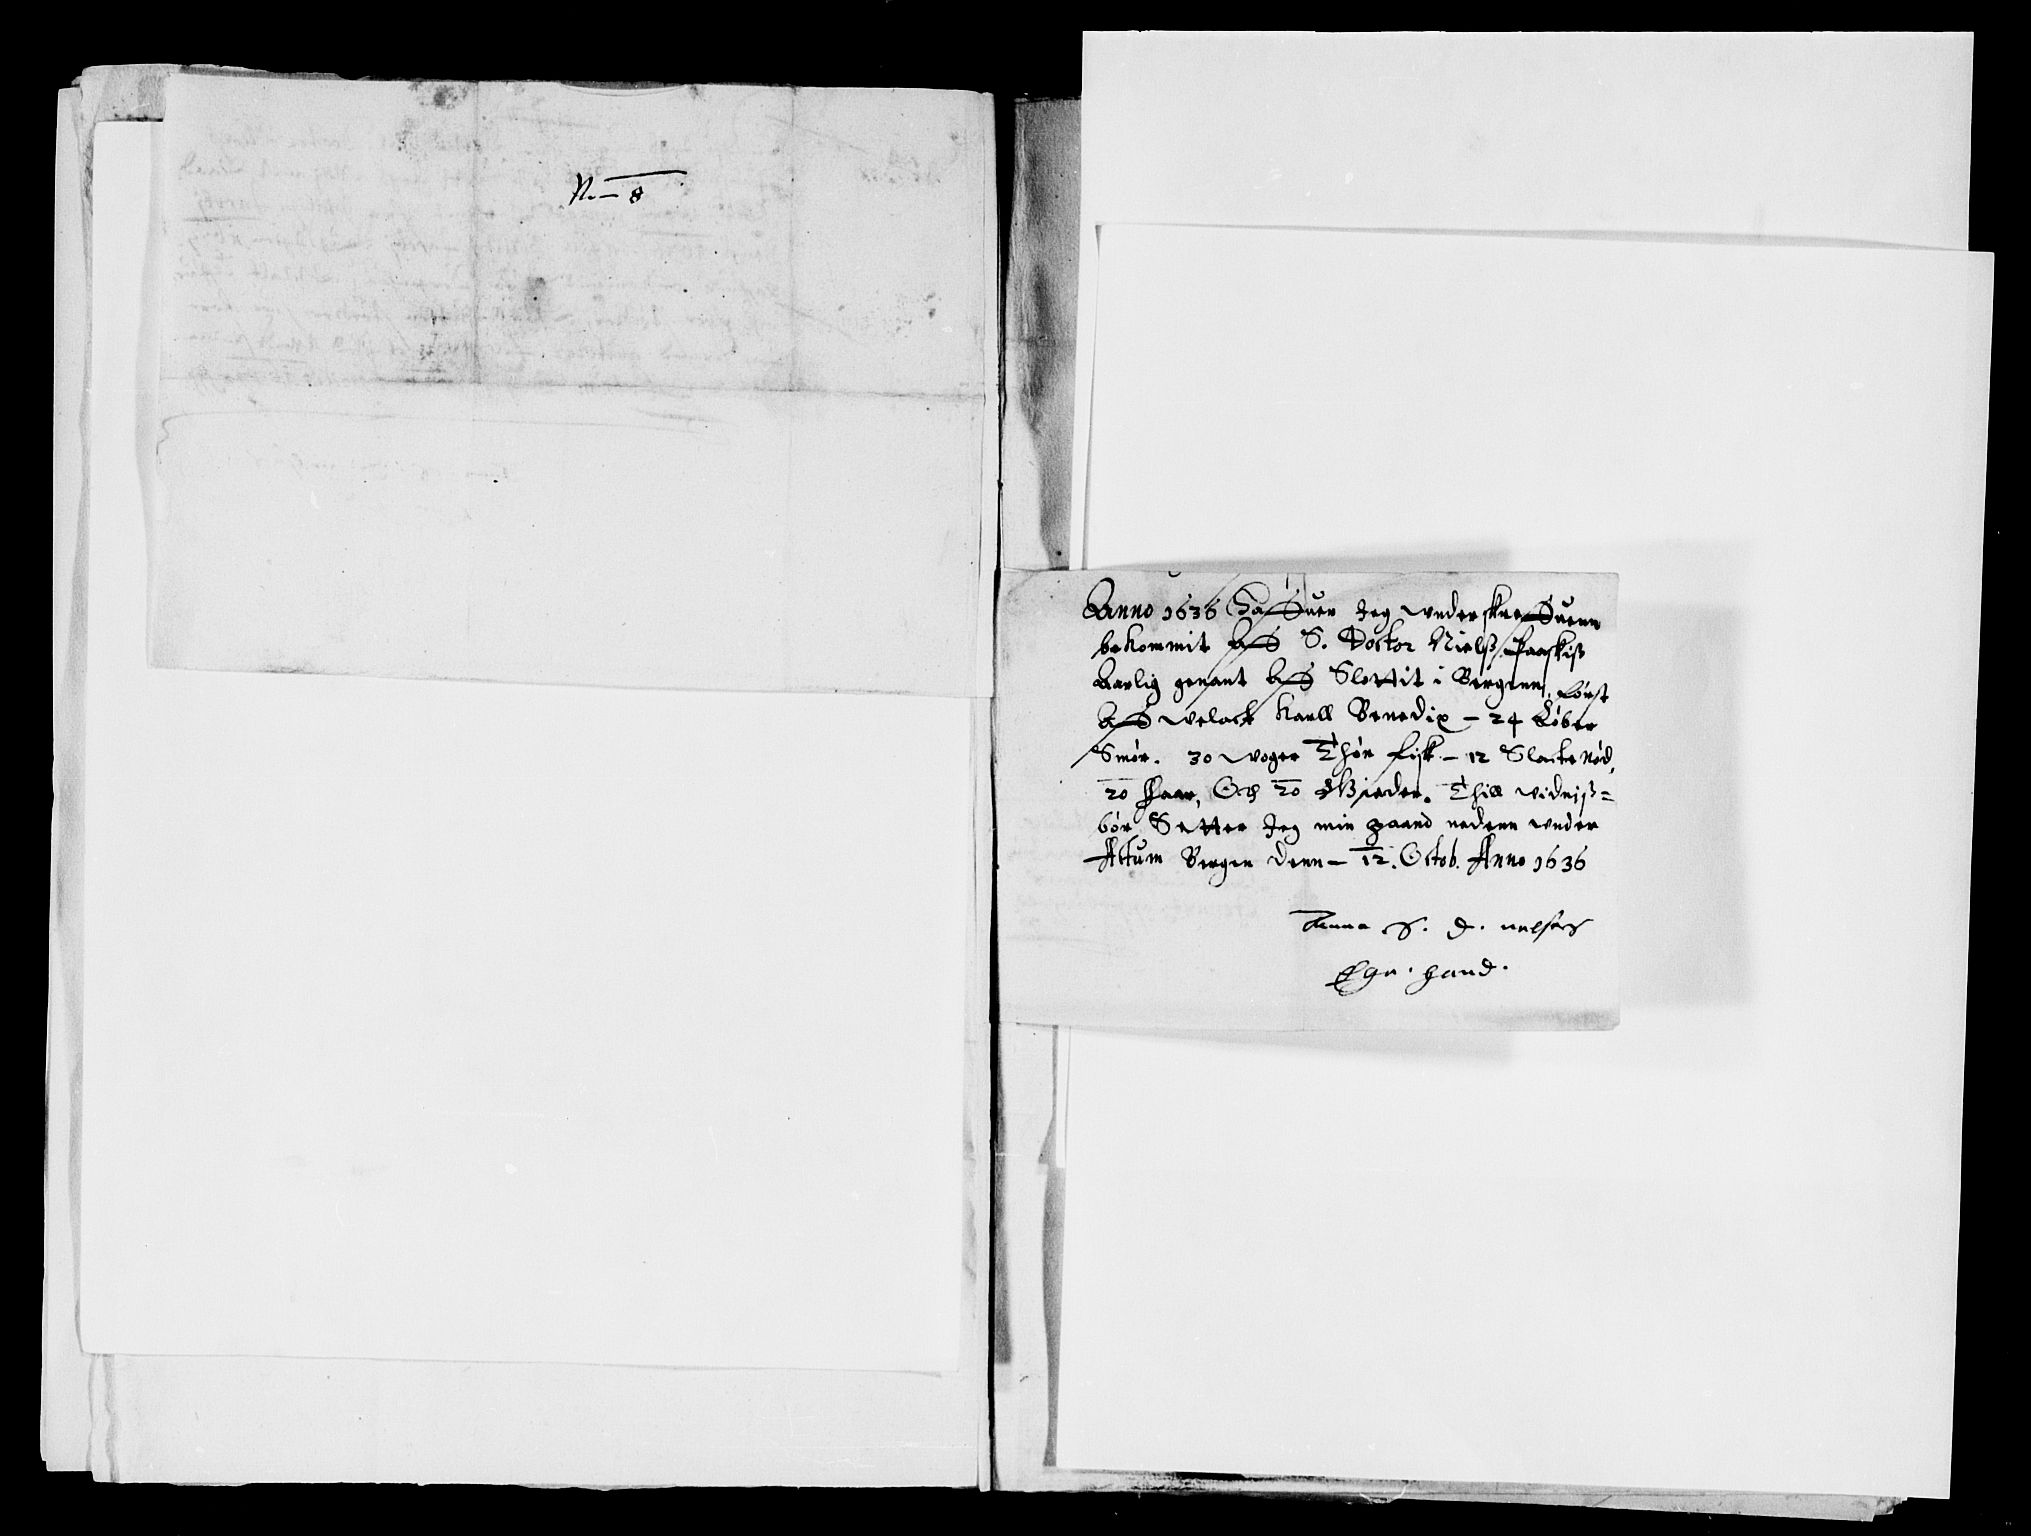 N. 8
Anno 1636 Haffuer Jeg underskreffuenn
bekommit aff S. Doctor Nielß Paaskiß
Aarlig genant aff Slottit i Bergenn, først
aff welacht Karll Benedix – 24 Løber
Smør. 30 Woger Thør fisk – 12 Slacte Nød,
20 Faar, Och 20 Gieder. Thill vidniß=
bør Setter Jeg min haand nedenn under
Actum Bergen denn – 12. Octob. Anno 1636
Anna S. D. nelsis
Egn. hand.